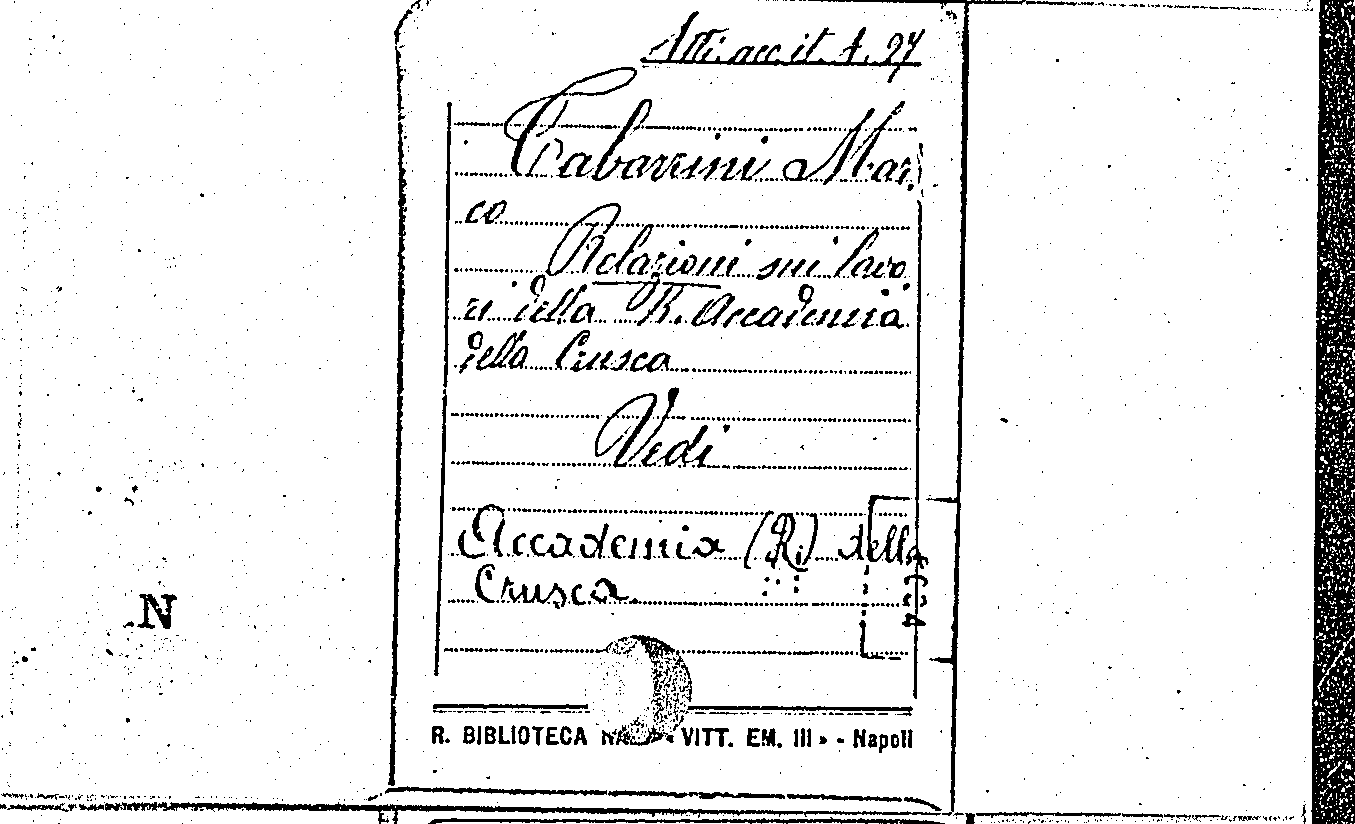 Atti. acc. it. A. 27
Tabarrini Mar
co
Relazioni sui lavo
ri della R. Accademia
della Crusca
Vedi
Accademia (R.) della
Crusca.
N
R. BIBLIOTECA NAZ. « VITT. EM. III » - Napoli